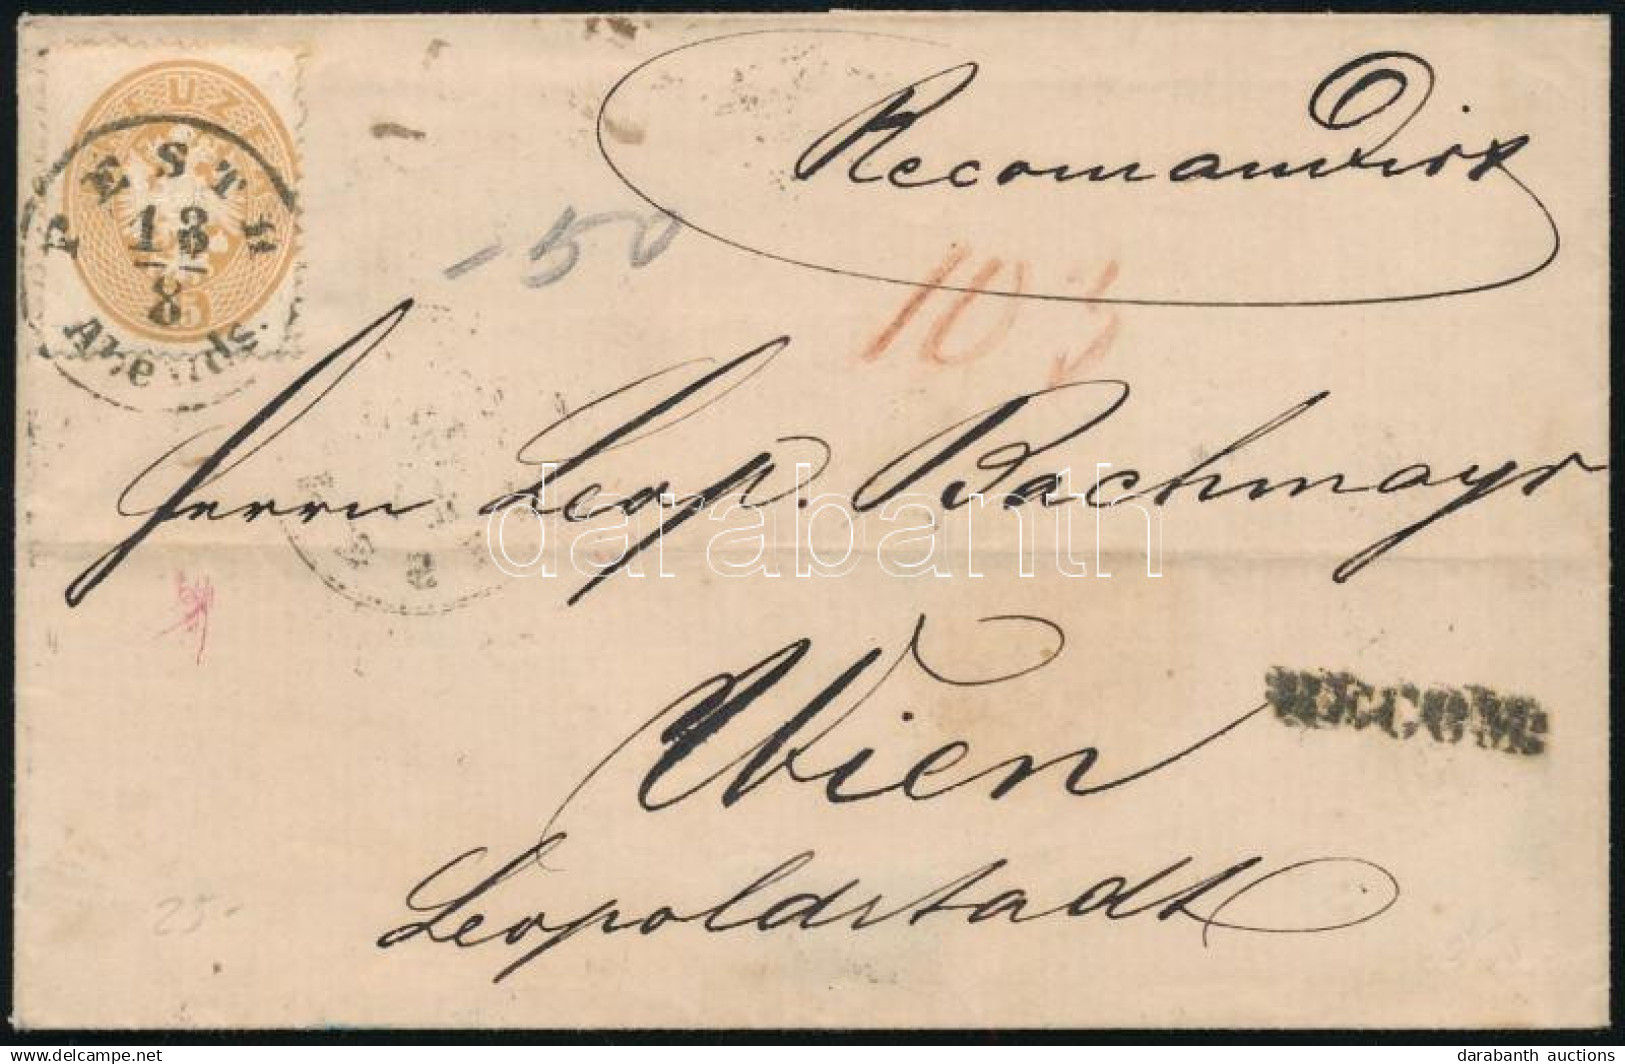 KREUZER
15
PESTH
13
8
Abends.
Recomandirt
-50
103
Herrn Leop. Bachmayr
darabanth
Wien
RECOM
Leopoldstadt
25-
www.delcampe.net
darabanth auctions